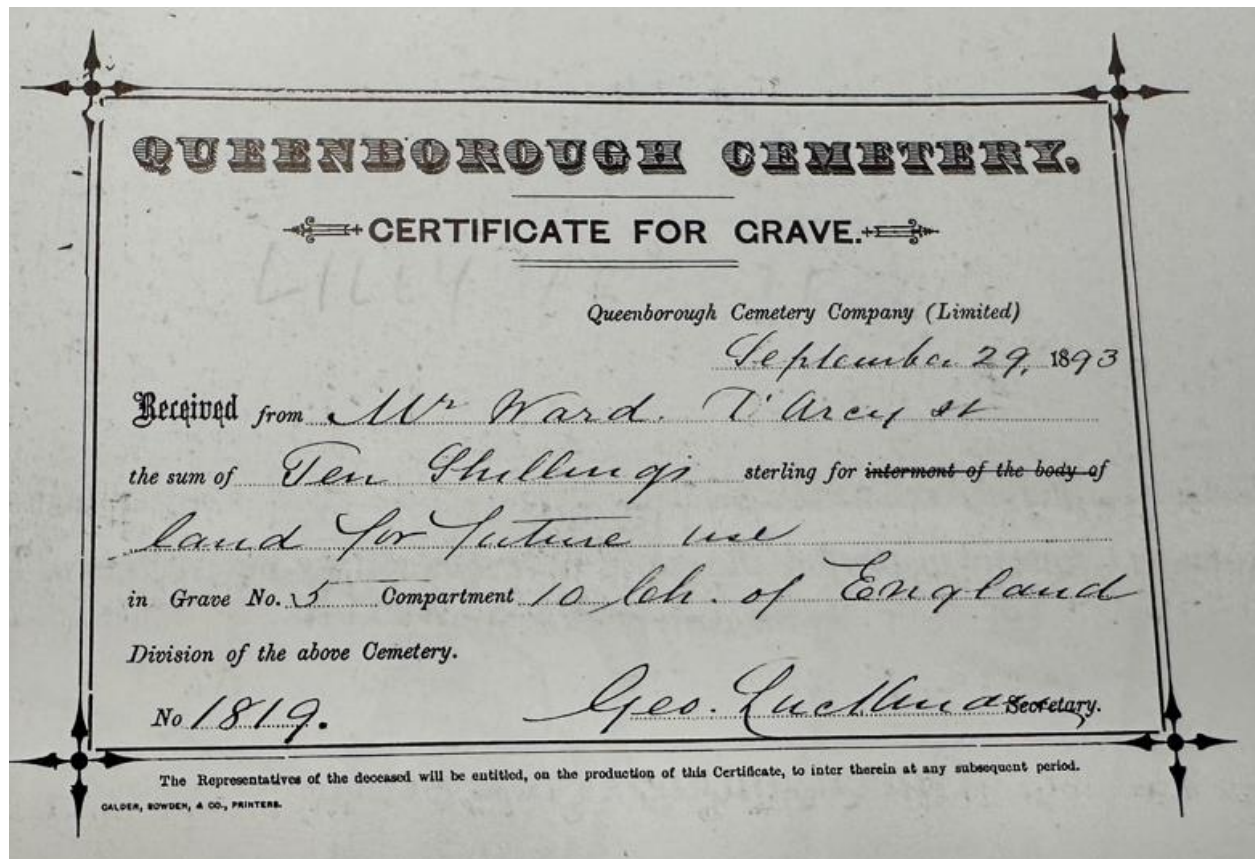 QUEENBOROUGH CEMETERY.
CERTIFICATE FOR GRAVE.
Queenborough Cemetery Company (Limited)
September 29, 1893
Received from Mr Ward. D'Arcy st
the sum of Ten Shillings sterling for interment of the body of
land for future use
in Grave No. 5 Compartment 10 Ch. of England
Division of the above Cemetery.
No 1819. Geo. Secretary.
The Representatives of the deceased will be entitled, on the production of this Certificate, to inter therein at any subsequent period.
CALDER, BOWDEN, & CO., PRINTERS.